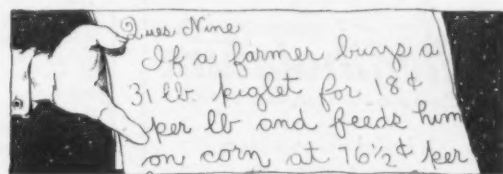 Ques Nine
If a farmer buys a
31 lb. piglet for 18¢
per lb and feeds him
on corn at 76½¢ per